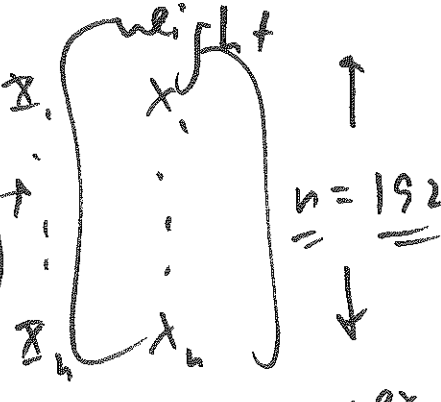 weight
X₁ x₁
n = 192
Xₙ xₙ